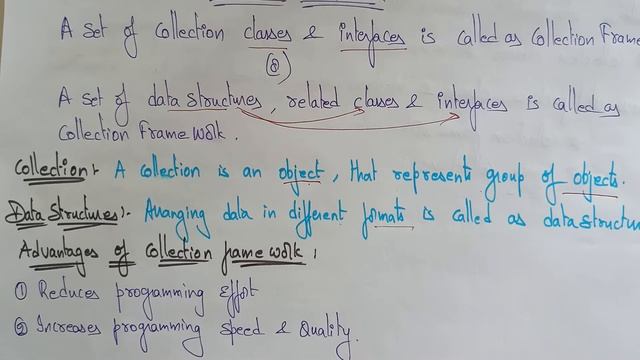 A set of collection classes & interfaces is called as Collection Frame
(or)
A set of data structures, related classes & interfaces is called as
Collection Frame work.
Collection:- A collection is an object, that represents group of objects.
Data Structures:- Arranging data in different formats is called as data structur
Advantages of Collection frame work:
① Reduces programming Effort
② Increases programming Speed & Quality.